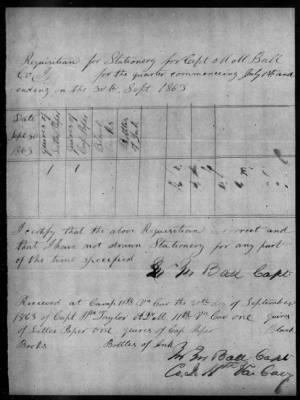 Requisition for Stationery for Capt M M Ball
Co. for the quarter commencing July 1st and
ending on the 30th Sept 1863
Date
Sept 30
1863
Quires of
Letter Paper
Quires of
Cap Paper
Blank
Books
Bottles
of Ink
1 1
I certify that the above Requisition is correct and
that I have not drawn Stationery for any part
of the time specified
M Ball Capt
Received at Camp 11th Va Cav the 30th day of September
1863 of Capt Wm Taylor AQM 11th Va Cav one quires
of Letter Paper one quires of Cap Paper Blank
Books. Bottles of Ink
M M Ball Capt
Co. 11th Va Cavy